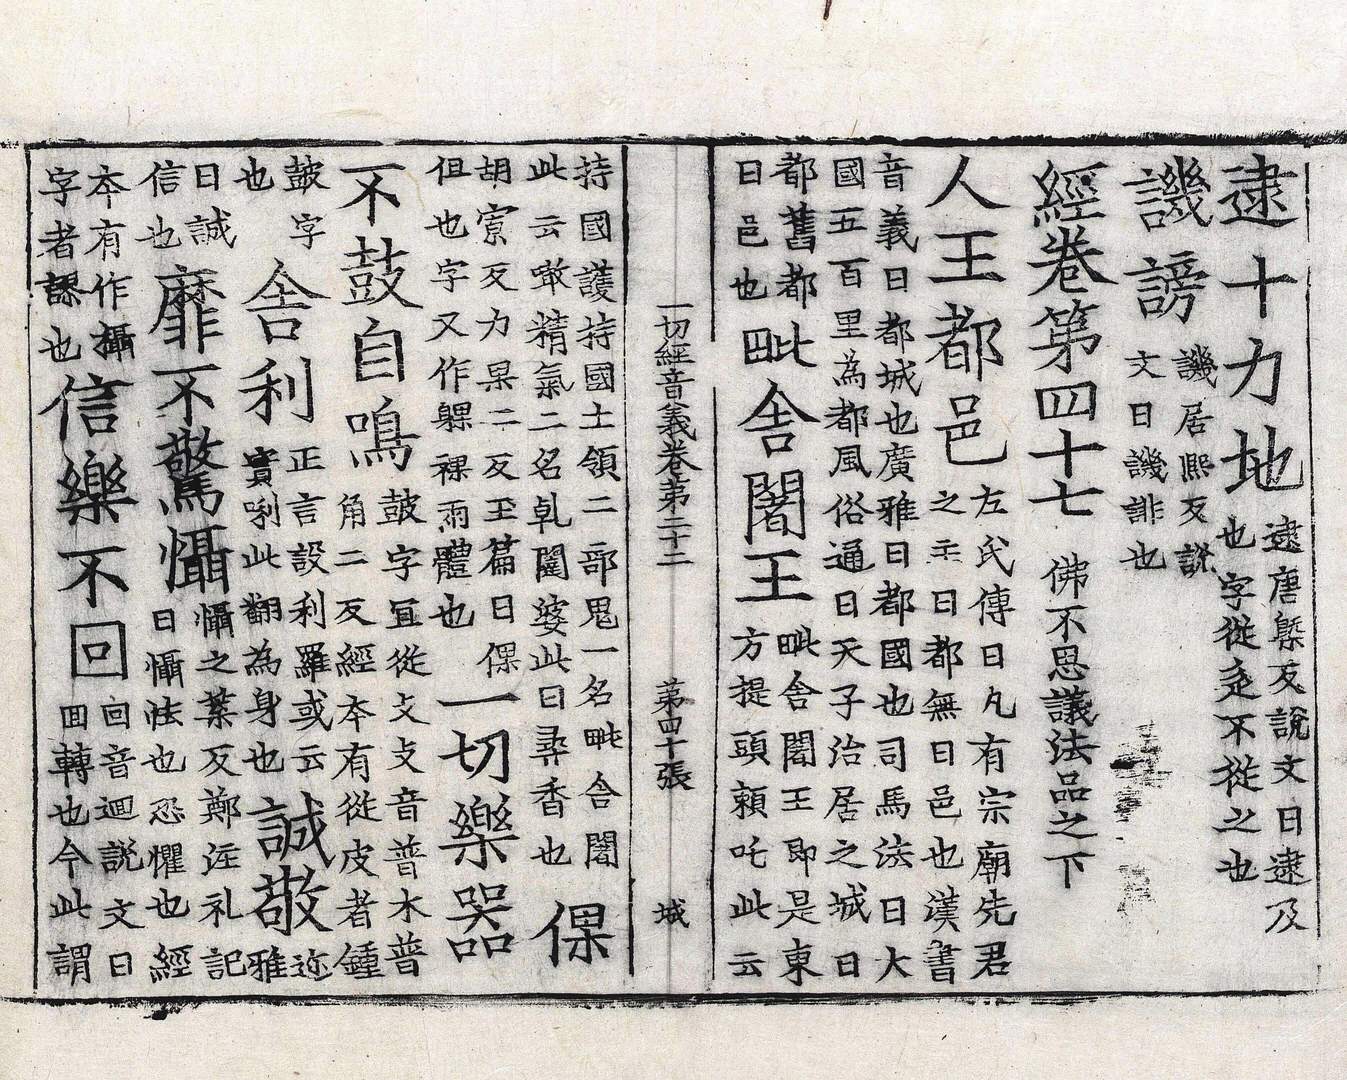 逮十力地逮唐槩反說文曰逮及
也字從辵不從之也
譏謗譏居熙反說
文曰譏誹也
經卷第四十七 佛不思議法品之下
人王都邑左氏傳曰凡有宗廟先君
之主曰都無曰邑也漢書
音義曰都城也廣雅曰都國也司馬法曰大
國五百里為都風俗通曰天子治居之城曰
都舊都
曰邑也
毗舍闍王毗舍闍王即是東
方提頭賴吒此云
一切經音義卷第二十二 第四十張 城
持國護持國土領二部鬼一名毗舍闍
此云噉精氣二名乹闥婆此曰尋香也
倮
胡寡反力果二反玉篇曰倮
但也字又作躶裸兩體也
一切樂器
不鼓自鳴鼓字宜從攴攴音普木普
角二反經本有從皮者鍾
鼓字
也
舍利正言設利羅或云
實唎此翻為身也
誠敬迩
雅
曰誠
信也
靡不驚懾懾之葉反鄭注礼記
曰懾怯也恐懼也經
本有作攝
字者謬也
信樂不回回音迴說文曰
回轉也今此謂